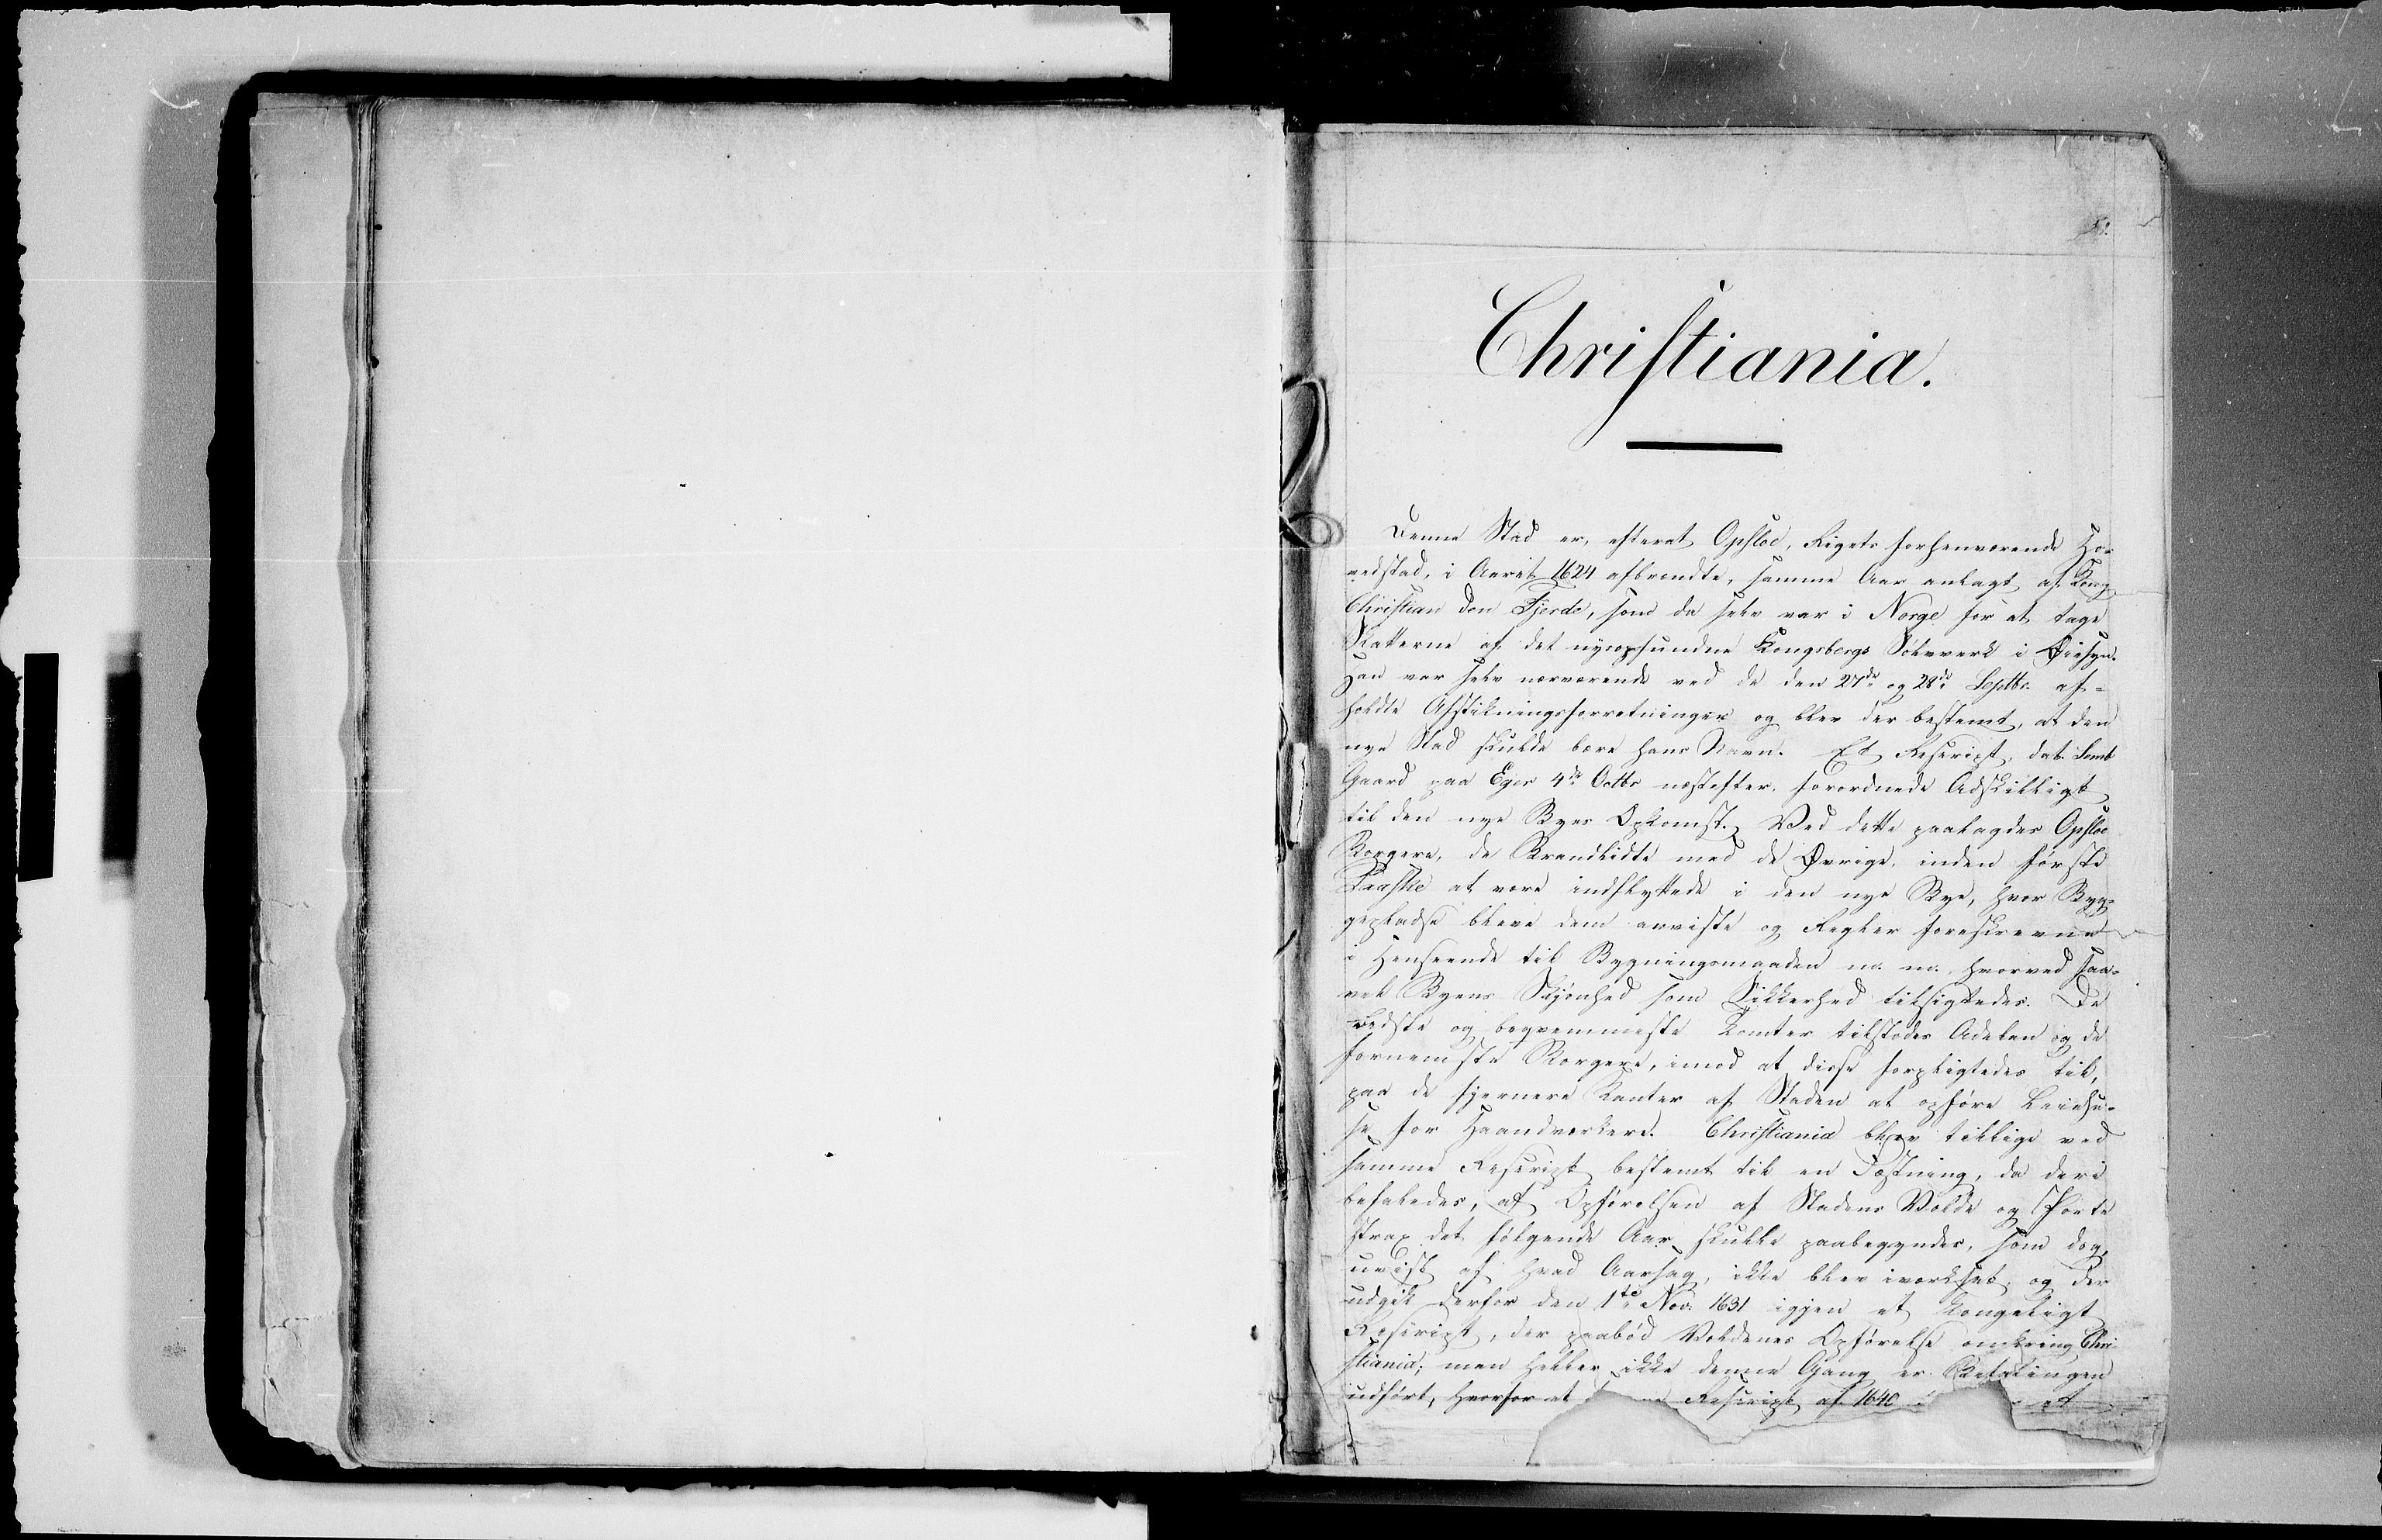 Christiania.
Denne Stad er, efterat Opsloe, Rigets forhenværende Ho-
vedstad, i Aaret 1624 afbrændte, samme Aar anlagt af Kong
Christian den Fjerde, som da selv var i Norge for at tage
Skatterne af det nyopfundne Kongsbergs Sölvverk i Øiesyn.
Han var selv nærværende ved de den 27de og 28de Septbr. af-
holdte Afstikningsforretninger og blev der bestemt, at den
nye Stad skulde bære hans Navn. Et Rescript, dat. Semb
Gaard paa Eger 4de Octbr næstefter, forordnede Adskilligt
til den nye Byes Opkomst. Ved dette paalagdes Opsloe
Borgere, de Brandlidte med de Øvrige, inden første
Paaske at være indflyttede i den nye Bye, hvor Byg-
gepladse bleve dem anviste og Regler foreskrevne
i Henseende til Bygningsmaaden m. m., hvorved saa-
vel Byens Skjönhed som Sikkerhed tilsigtedes. De
bedste og beqvemmeste Tomter tilstodes Adelen og de
fornemste Borgere, imod at disse forpligtedes til,
paa de fjernere Kanter af Staden at opføre Leiehu-
se for Haandværkere. Christiania blev tillige ved
samme Rescript bestemt til en Fæstning, da deri
befaledes, at Opförelsen af Stadens Volde og Porte
strax det fölgende Aar skulle paabegyndes, som dog,
uvist af hvad Aarsag, ikke blev iværksat, og der
udgik derfor den 1te Nov. 1631 igjen et Kongeligt
Rescript, der paabød Voldenes Opförelse omkring Chri-
stiania; men heller ikke denne Gang er Befalingen
udført, hvorfor at Rescript af 1640 at